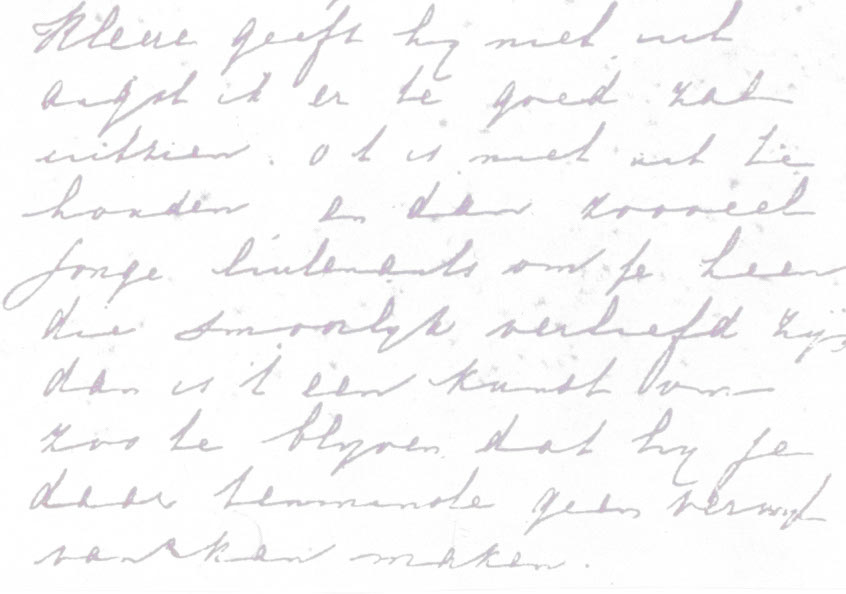 kleur geeft hy niet uit
angst ik er te goed zal
uitzien. o 't is niet uit te
houden en dan zooveel
jonge luitenants om je heen
die smoorlyk verliefd zijn
dan is 't een kunst om
zoo te blyven dat hy je
daar tenminste geen verwyt
van kan maken.